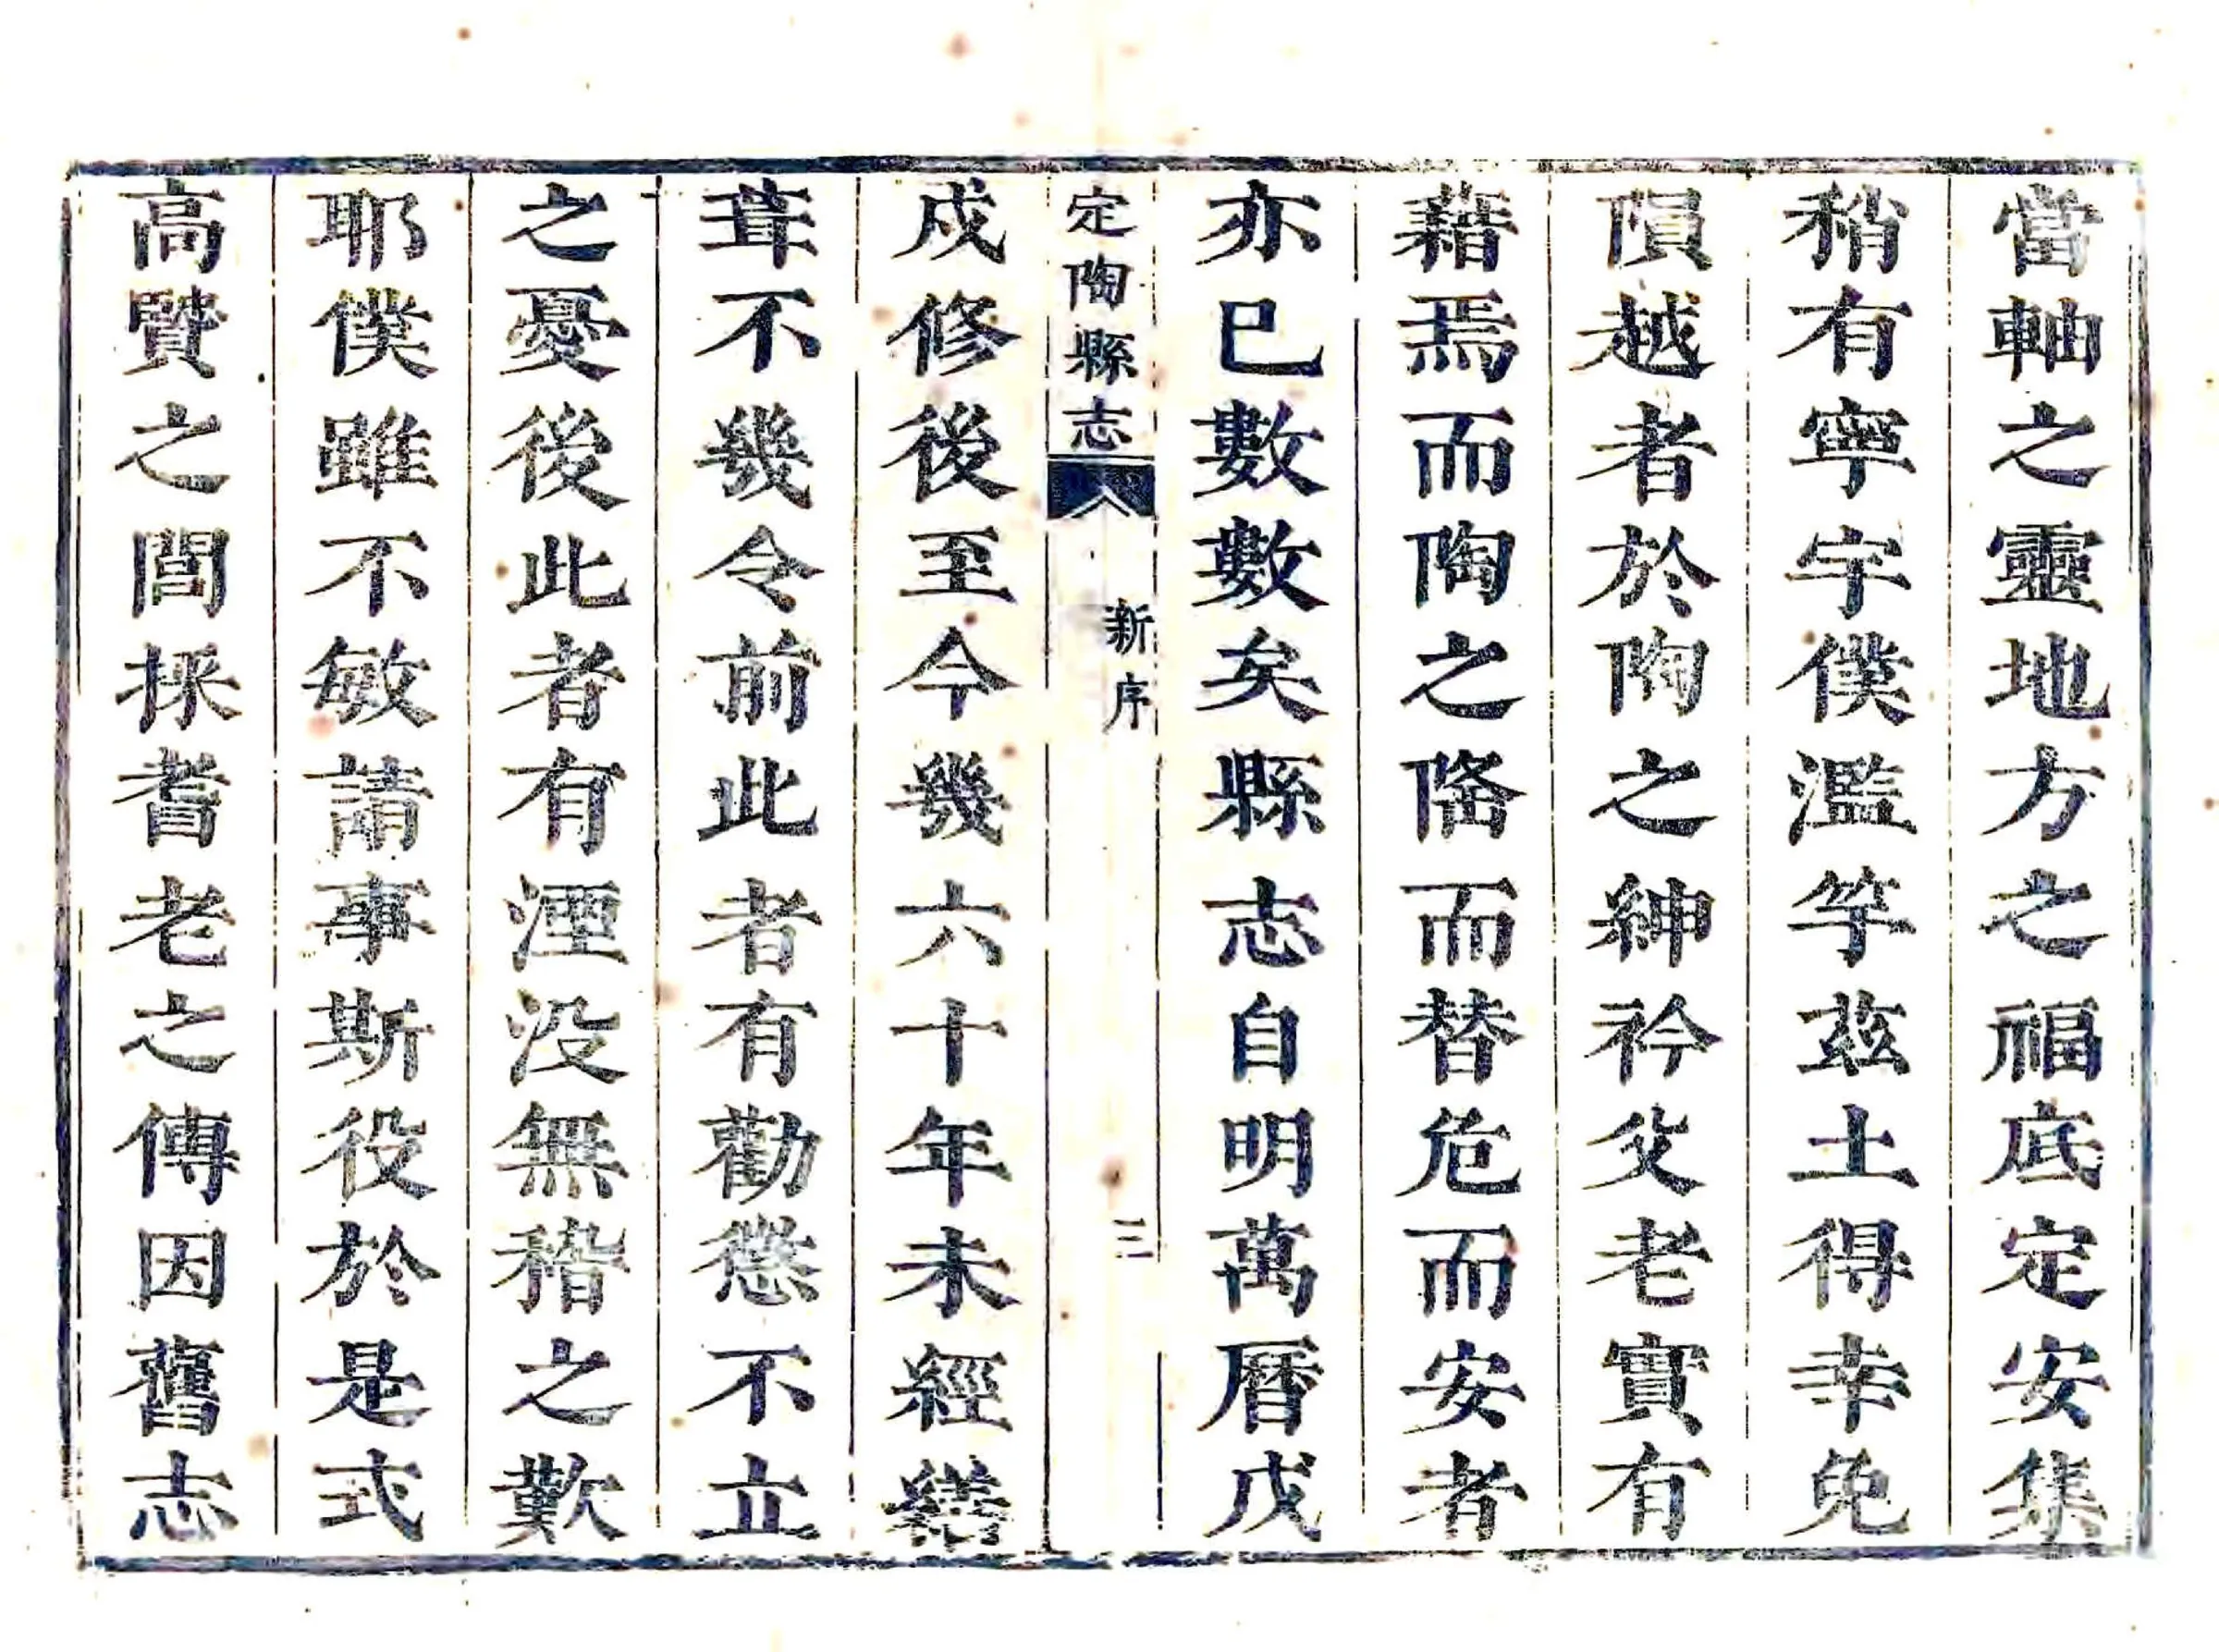 當軸之靈地方之福底定安集
稍有寧宇僕濫竽兹土得幸免
隕越者於陶之紳衿父老實有
藉焉而陶之隆而替危而安者
亦已數數矣縣志自明萬曆戊
定陶縣志 新序 三
戍修後至今幾六十年未經繕
葺不幾令前此者有勸懲不立
之憂後此者有湮没無稽之歎
耶僕雖不敏請事斯役於是式
高賢之閭採耆老之傳因舊志